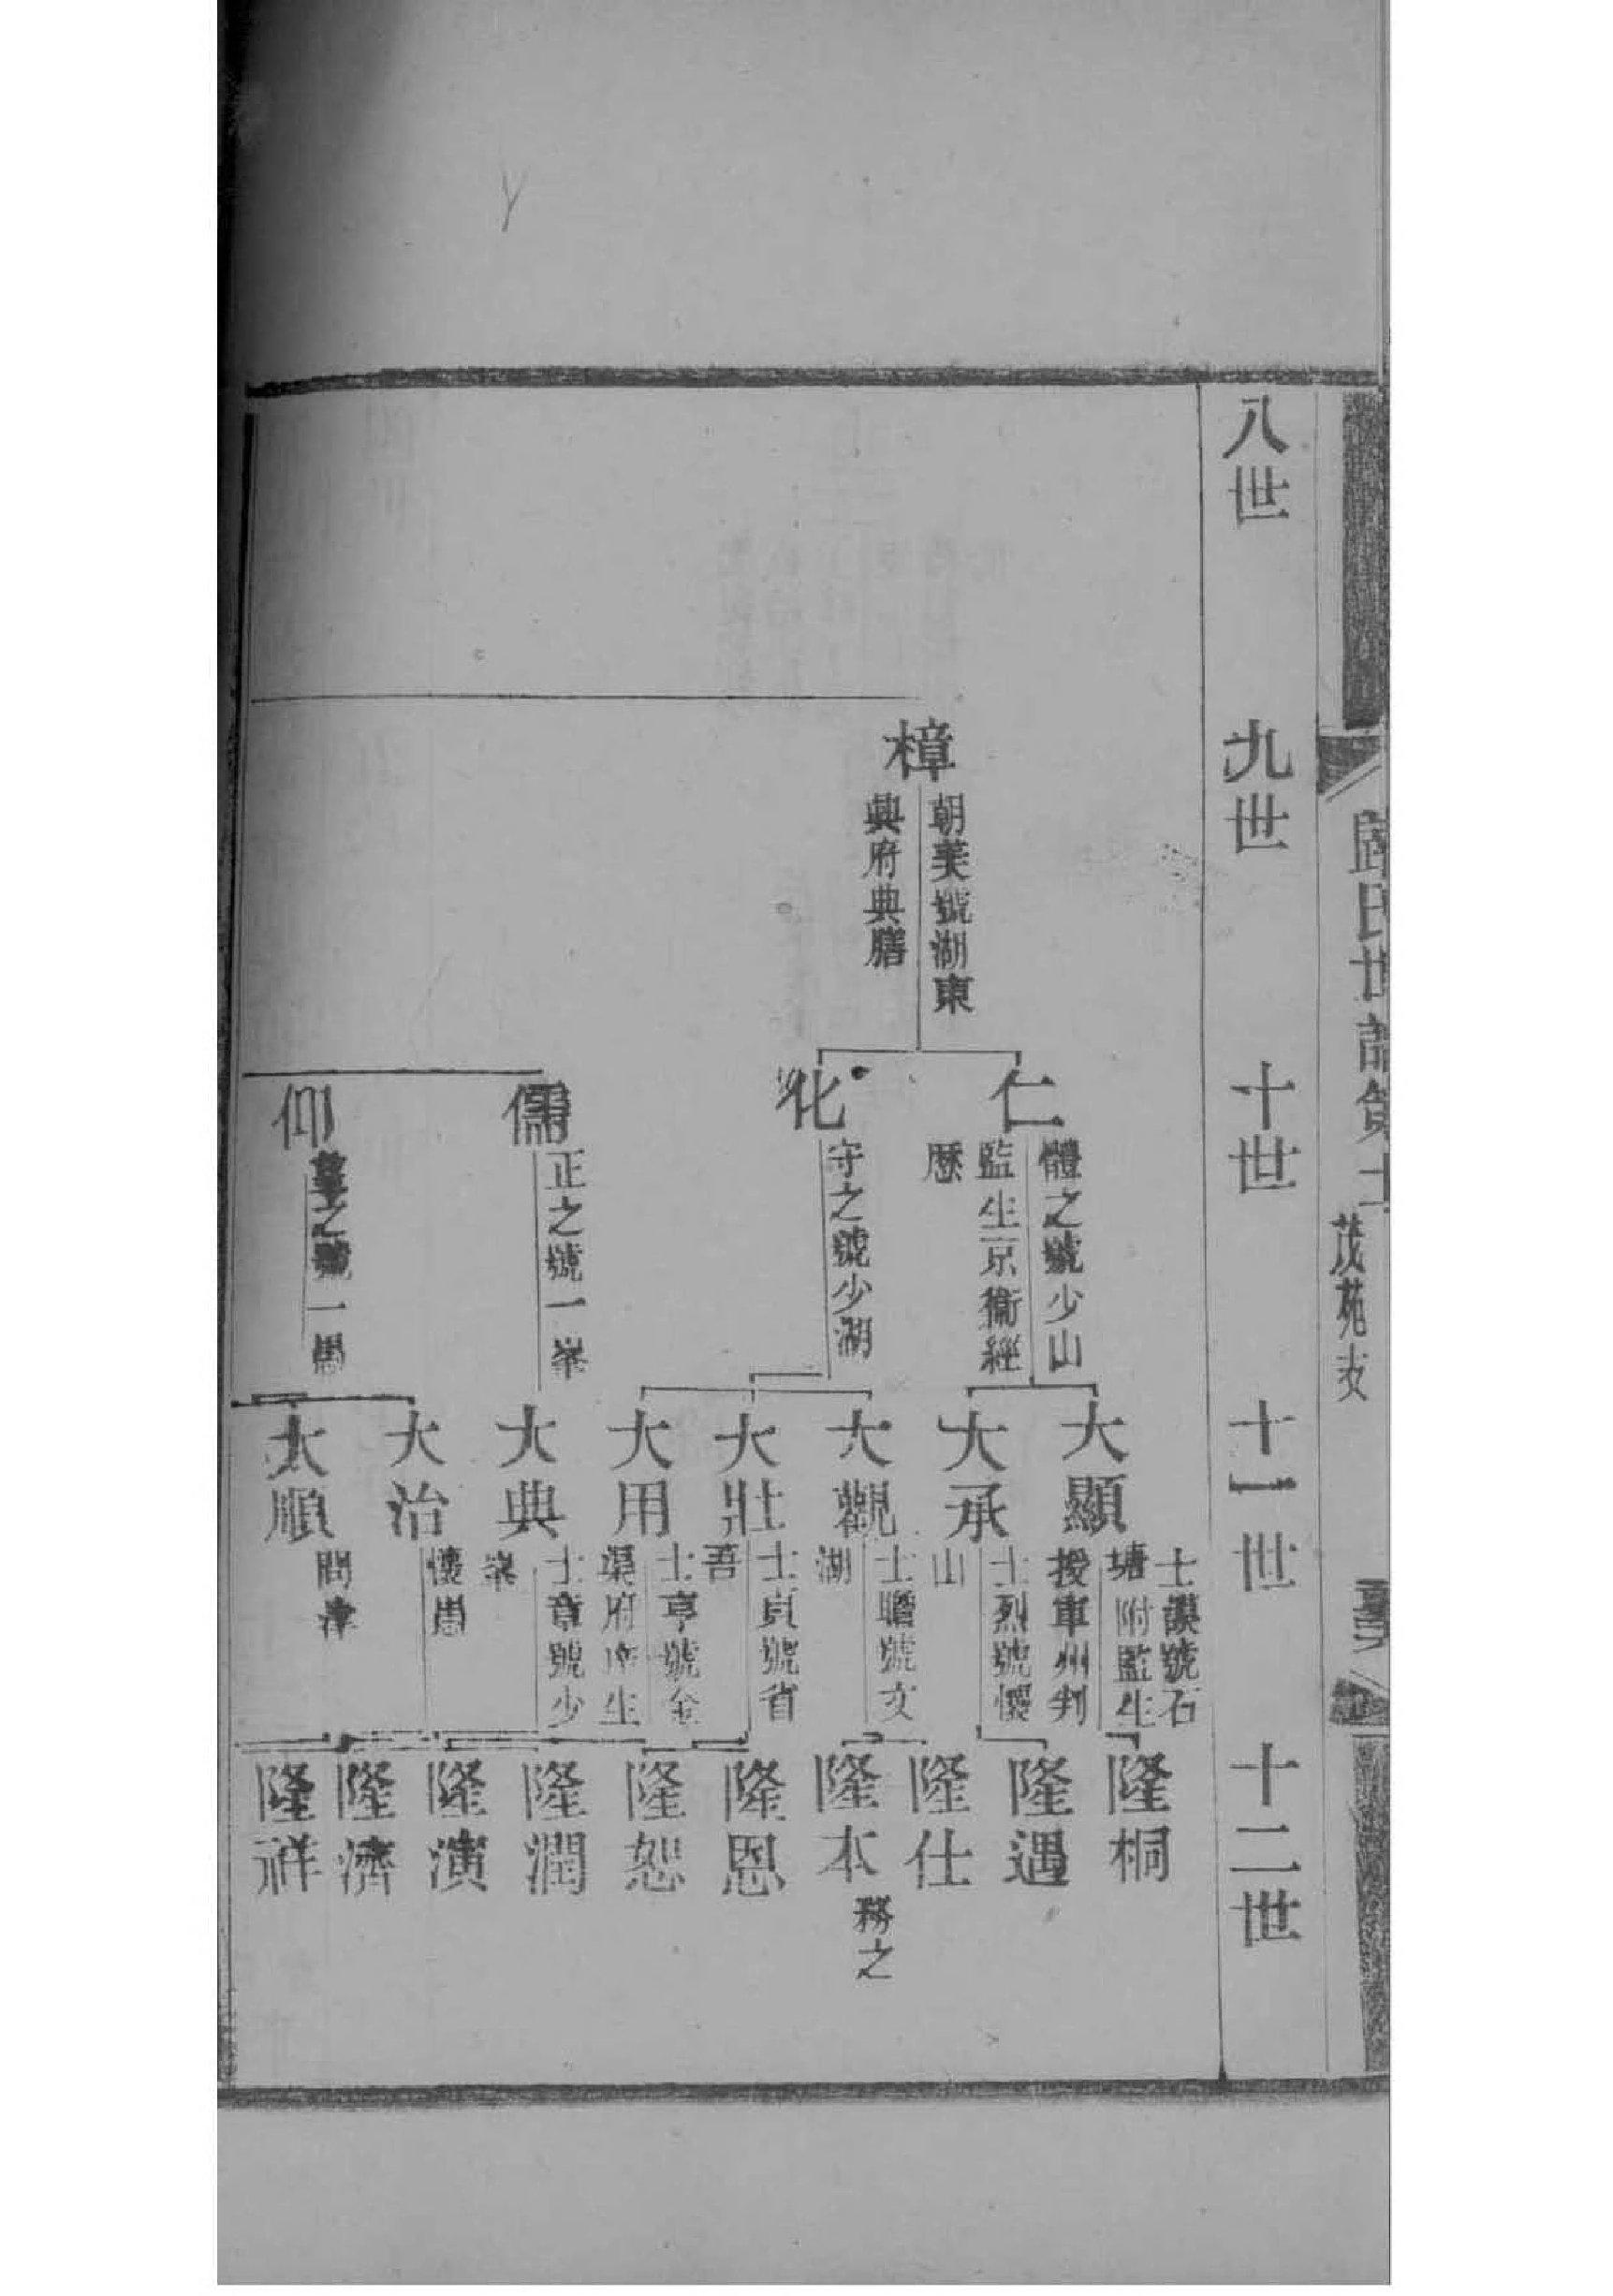 氏世譜
茂苑支
八世
九世
十世
十一世
十二世
樟
朝美號湖東
興府典膳
仁
體之號少山
監生京衞經
歷
化
守之號少湖
儒
正之號一峯
仰
之號一愚
大顯
士謨號石
塘附監生
授軍州判
大承
士烈號懷
山
大觀
士瞻號文
湖
大壯
士貞號省
吾
大用
士亨號金
渠府庠生
大典
士章號少
峯
大治
懷愚
大順
問津
隆桐
隆遇
隆仕
隆本
務之
隆恩
隆恕
隆潤
隆演
隆濟
隆祥